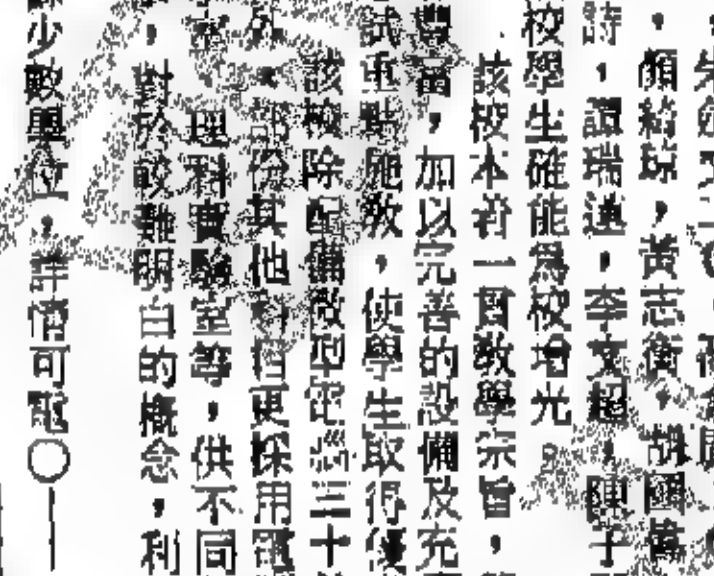 ，顏綺琼，黃志衡，胡國雋
詩，譚瑞蓮，李文超，陳士
校學生確能為校增光。
該校本着一貫教學宗旨，
豐富，加以完善的設備及充
試重點施教，使學生取得優
該校除配備微型電腦三十
外，部份其他科目更採用電
理科實驗室等，供不同
，對於較難明白的概念，利
少數學位，詳情可電〇一